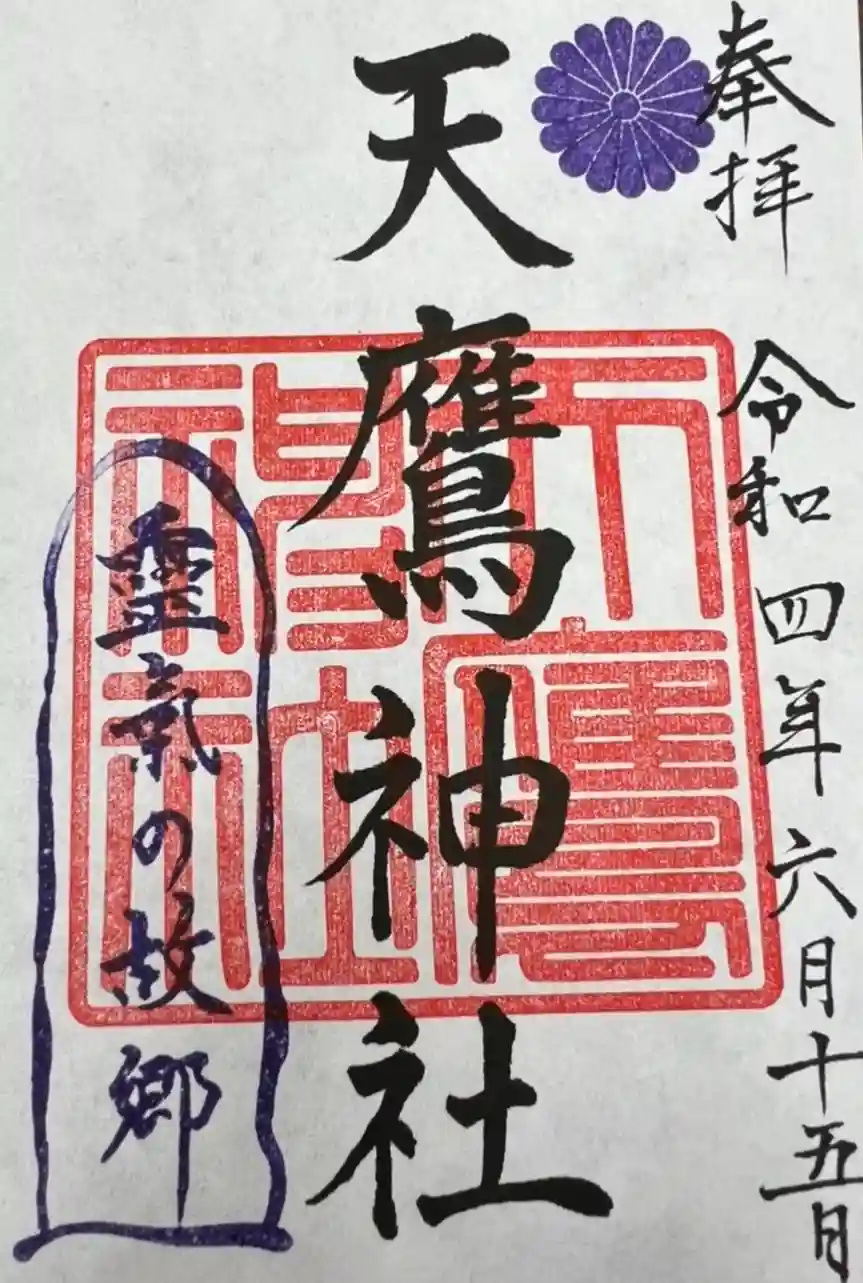 奉拝 令和四年六月十五日
天鷹神社
天鷹神社
霊氣の故郷